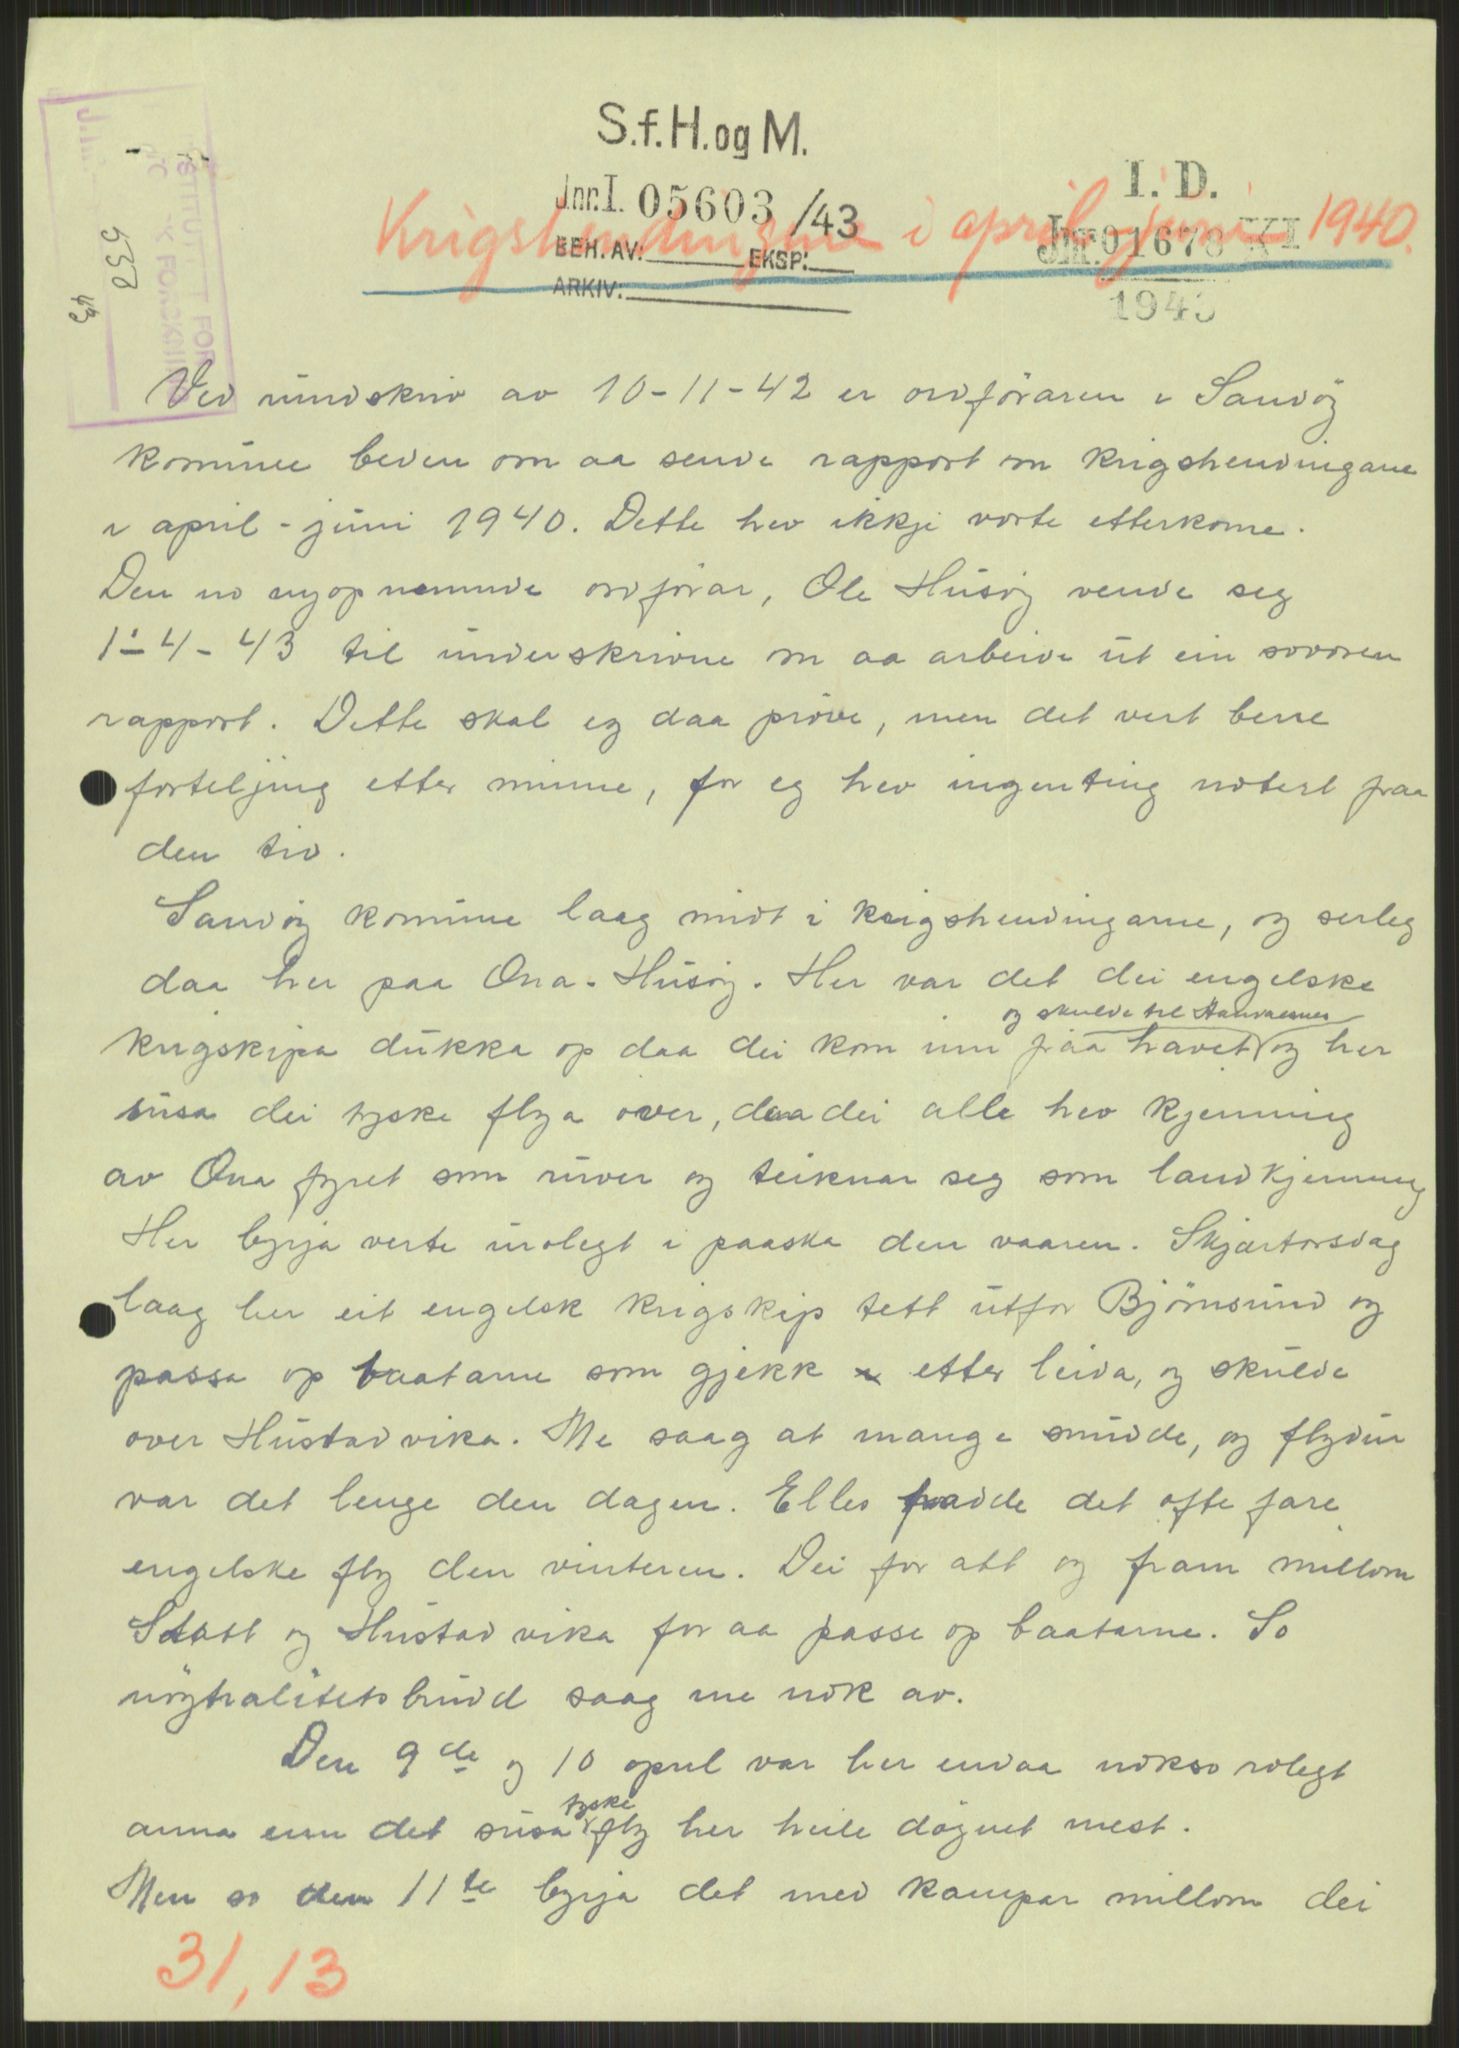 S.f.H.og M.
Jnr.I. 05603 /43
BEH. AV: EKSP:
ARKIV:
I. D.
Jnr. 01678 XI
1943
Krigshendingane i april-juni 1940.
Ved rundskriv av 10-11-42 er ordföraren i Sandöy
kommune beden om aa sende rapport om krigshendingane
i april-juni 1940. Dette hev ikkje vorte etterkome.
Den no nyopnemnde ordförar, Ole Husöy vende seg
1-4-43 til underskrivne om aa arbeide ut ein sovoren
rapport. Dette skal eg daa pröve, men det vert berre
forteljing etter minne, for eg hev ingenting notert fraa
den tid.
Sandöy kommune laag midt i krigshendingarne, og serleg
daa her paa Ona-Husöy. Her var det dei engelske
og skulde til Haudnesnes
krigskipa dukka op daa dei kom inn fraa havet og her
susa dei tyske flya över, daa dei alle hev kjenning
av Ona fyret som ruver og teiknar seg som landkjenning
Her byrja verte urolegt i paaska den vaaren. Skjærtorsdag
laag her eit engelsk krigskip tett utfor Björnsund og
passa op baatarne som gjekk etter leida, og skulde
over Hustadvika. Me saag at mange snudde, og flydur
var det lenge den dagen. Elles hadde det ofte fare
engelske fly den vinteren. Dei for att og fram millom
Statt og Hustadvika for aa passe op baatarne. So
nöytralitetsbrudd saag me nok av.
Den 9de og 10 april var her endaa nokso rolegt
tyske
anna enn det susa fly her heile dögnet mest.
Men so den 11te byrja det med kampar millom dei
31,13